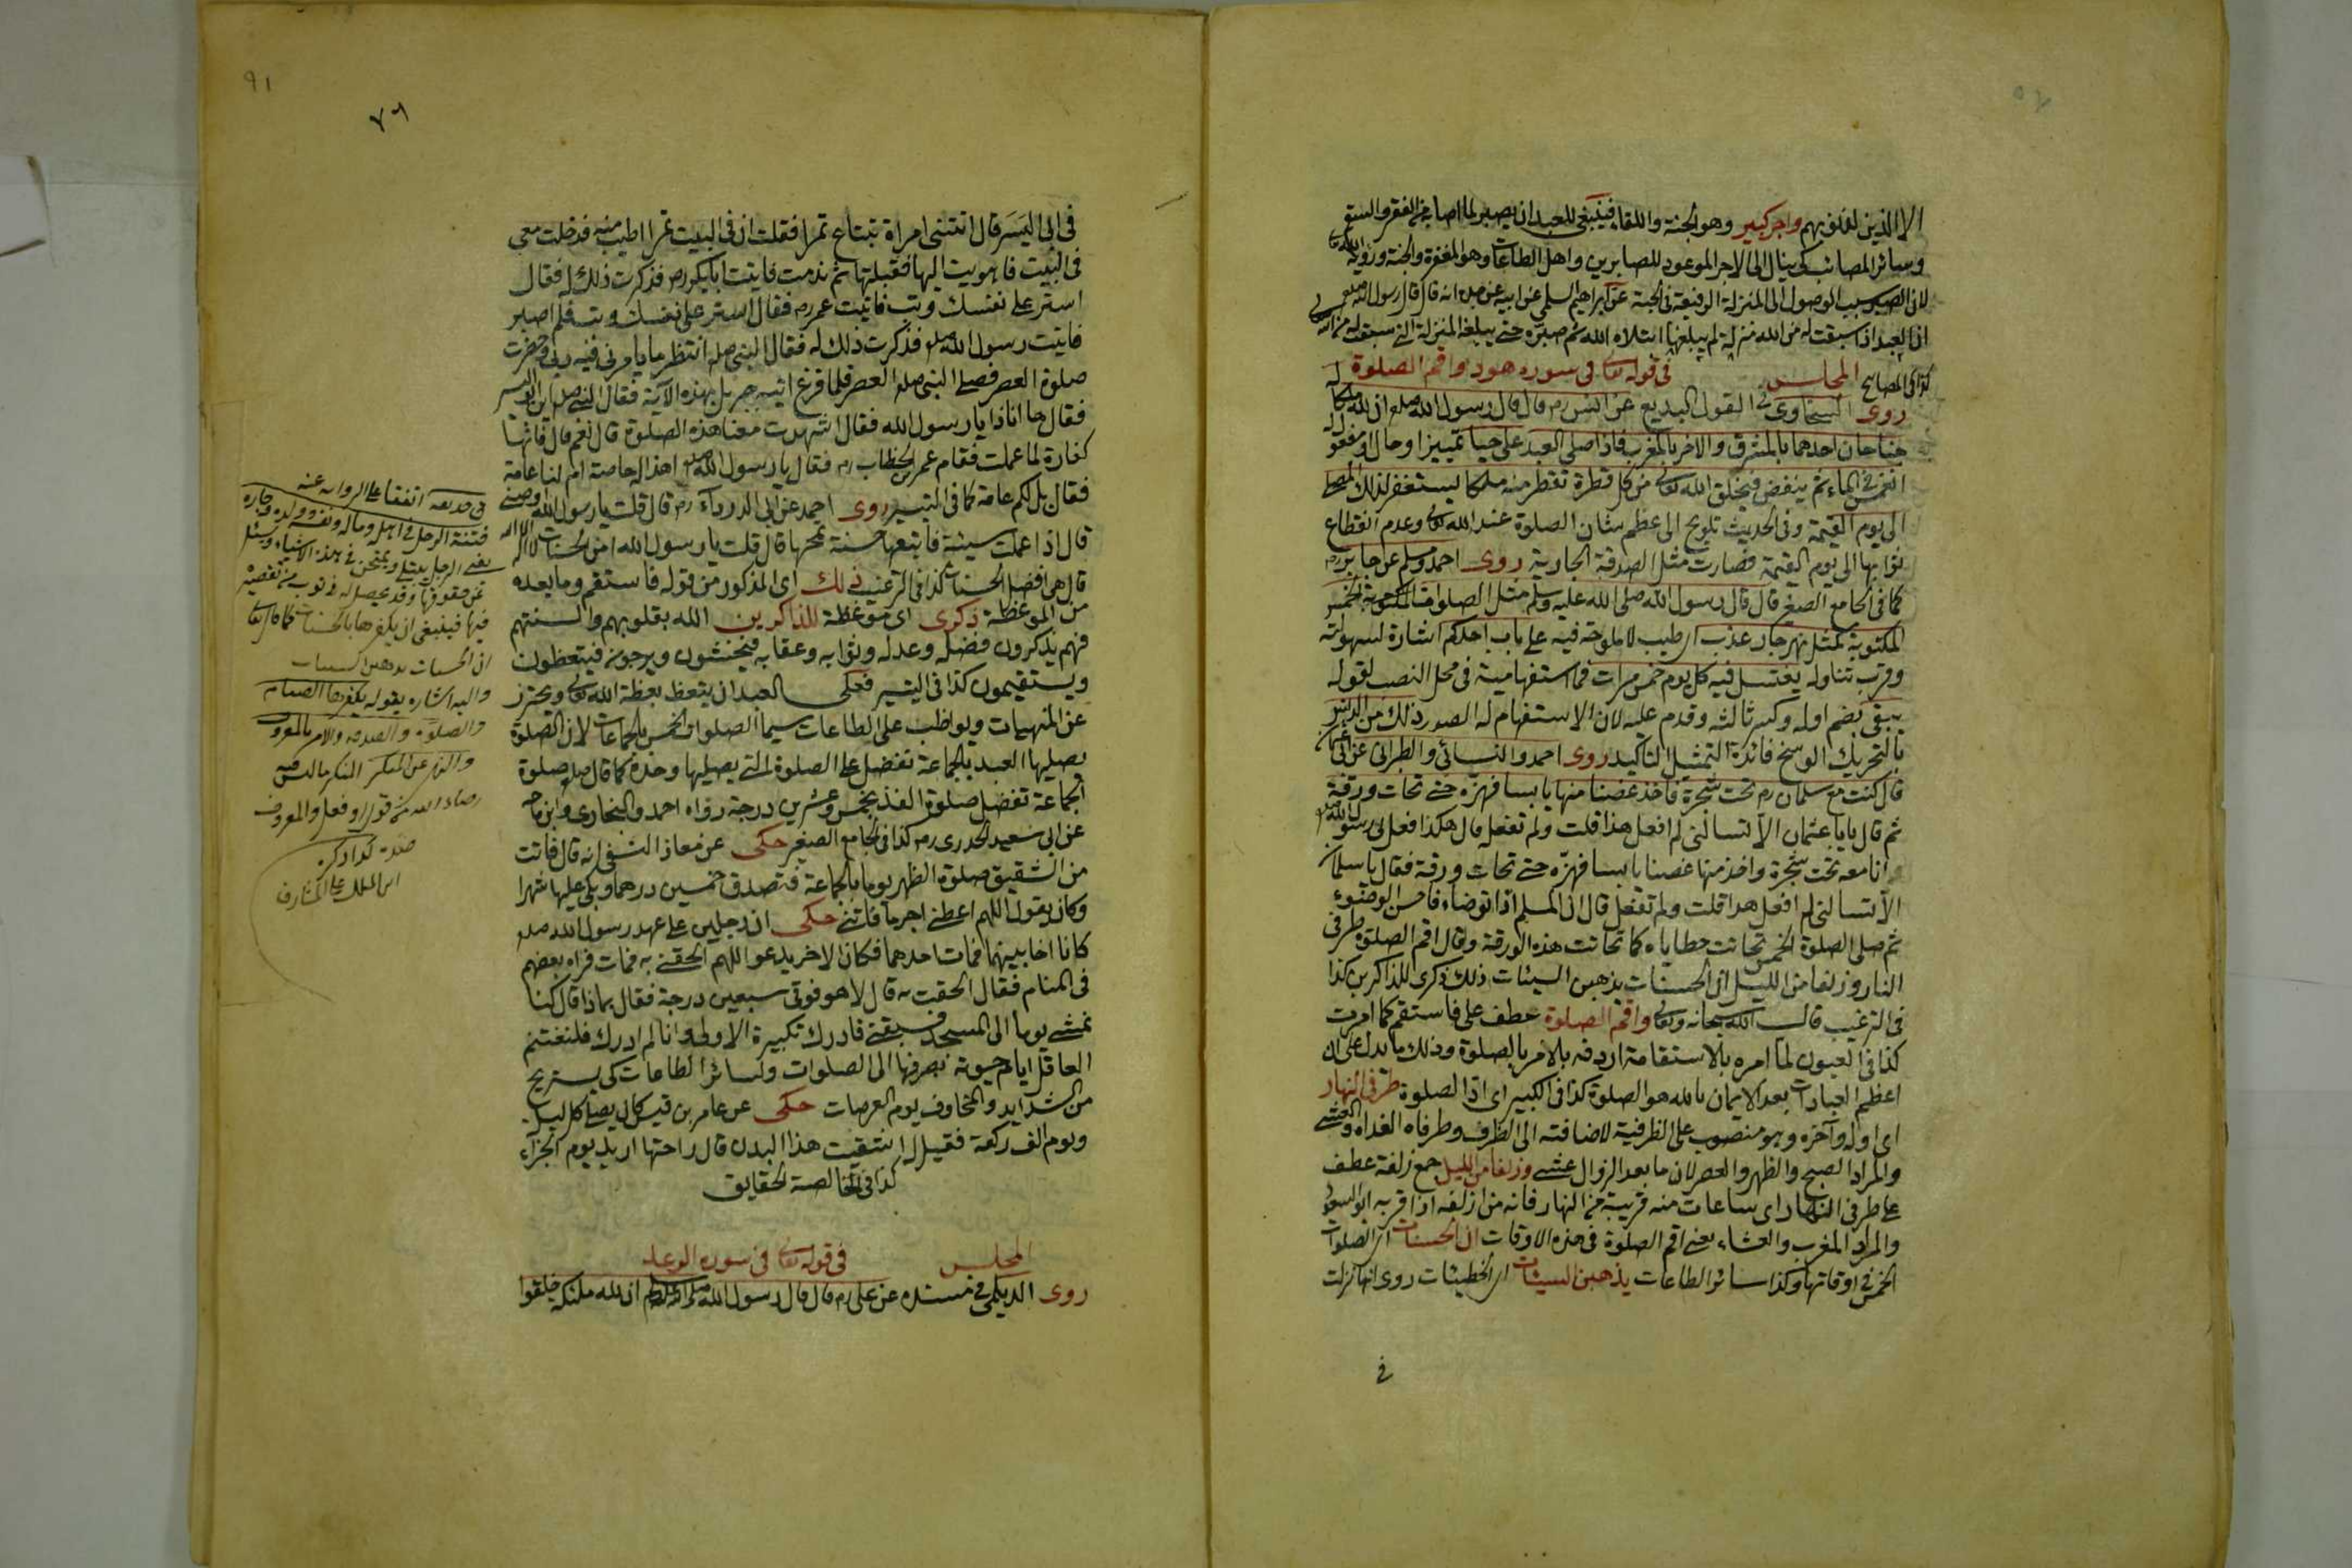 الا الذين لغلوبهم واجر كبير وهو الجنة واللقاء فينبغى للعبد ان يصبر لما اصابه من الفقر والسقم
وسائر المصائب كى ينال الى الاجر الموعود للصابرين واهل الطاعات وهو المغفرة والجنة ورؤية الله تعا
لان الصبر سبب الوصول الى المنزلة الرفيعة فى الجنة عن ابراهيم السلمى عن ابيه عن جده انه قال قال رسول الله صلعم
ان العبد اذا سبقت له من الله منزلة لم يبلغها ابتلاه الله ثم صبره حتى يبلغه المنزلة التى سبقت له من الله
كذا فى المصابيح المجلس فى قوله تعالى فى سورة هود واقم الصلوة
روى السخاوى فى القول البديع عن انس رم قال قال رسول الله صلعم ان لله ملكا له
جناحان احدهما بالمشرق والاخر بالمغرب فاذا صلى العبد على حبا
انغمس فى الماء ثم ينفض فيخلق الله تعالى من كل قطرة تقطر منه ملكا يستغفر لذلك المصلى
الى يوم القيمة وفى الحديث تلويح الى عظم شان الصلوة عند الله تعالى وعدم انقطاع
ثوابها الى يوم القيمة فصارت مثل الصدقة الجارية روى احمد ومسلم عن جابر رم
كما فى الجامع الصغير قال قال رسول الله صلى الله عليه وسلم مثل الصلوات الخمس
المكتوبة كمثل نهر جار عذب اى طيب لا ملوحة فيه على باب احدكم اشارة لسهولته
وقرب تناوله يغتسل فيه كل يوم خمس مرات فما استفهامية فى محل النصب لقوله
يبقى بضم اوله وكسر ثالثه وقدم عليه لان الاستفهام له الصدر ذلك من الدنس
بالتحريك الوسخ فائدة التمثيل التأكيد روى احمد والنسائى والطبرانى عن ابى عثمان
قال كنت مع سلمان رم تحت شجرة فاخذ غصنا منها يابسا فهزه حتى تحات ورقة
ثم قال يا ابا عثمان الا تسألنى لم افعل هذا قلت ولم تفعل قال هكذا فعل بى رسول الله صلعم
وانا معه تحت شجرة واخذ منها غصنا يابسا فهزه حتى تحات ورقة فقال يا سلمان
الا تسألنى لم افعل هذا قلت ولم تفعل قال ان المسلم اذا توضاء فاحسن الوضوء
ثم صلى الصلوة الخمس تحاتت خطاياه كما تحاتت هذه الورقة وقال اقم الصلوة طرفى
النهار وزلفا من الليل ان الحسنات يذهبن السيئات ذلك ذكرى للذاكرين كذا
فى الترغيب قال الله سبحانه وتعالى واقم الصلوة عطف على فاستقم كما امرت
كذا فى العيون لما امره بالاستقامة اردفه بالامر بالصلوة وذلك مما يدل على ان
اعظم العبادات بعد الايمان بالله هو الصلوة كذا فى الكبير اى ادّ الصلوة طرفى النهار
اى اوله وآخره وهو منصوب على الظرفية لاضافته الى الظرف وطرفاه الغداة والعشى
والمراد الصبح والظهر والعصر لان ما بعد الزوال عشى وزلفا من الليل جمع زلفة عطف
على طرفى النهار اى ساعات منه قريبة من النهار فانه من ازلفه اذا قربه ابو السعود
والمراد المغرب والعشاء يعنى اقم الصلوة فى هذه الاوقات ان الحسنات اى الصلوات
الخمس فى اوقاتها وكذا سائر الطاعات يذهبن السيئات اى الخطيئات روى انها نزلت
فى
٩١
٧٦
فى ابى اليَسَر قال اتتنى امراة تبتاع تمرا فقلت ان فى البيت تمرا اطيب منه فدخلت معى
فى البيت فاهويت اليها فقبلتها ثم ندمت فاتيت ابا بكر رم فذكرت ذلك له فقال
استر على نفسك وتب فاتيت عمر رم فقال استر على نفسك وتب فلم اصبر
فاتيت رسول الله صلعم فذكرت ذلك له فقال النبى صلعم انتظر ما يأمرنى فيه ربى وحضرت
صلوة العصر فصلى النبى صلعم العصر فلما فرغ اتيه جبريل بهذه الآية فقال النبى صلعم اين ابو اليسر
فقال ها انا ذا يا رسول الله فقال اشهدت معنا هذه الصلوة قال نعم قال فانها
كفارة لما عملت فقام عمر بن الخطاب رم فقال يا رسول الله صلعم اهذا له خاصة ام لنا عامة
فقال بل لكم عامة كما فى التيسير روى احمد عن ابى الدرداء رم قال قلت يا رسول الله اوصنى
قال اذا عملت سيئة فاتبعها حسنة تمحها قال قلت يا رسول الله امن الحسنات لا اله الا الله
قال هى افضل الحسنات كذا فى الترغيب ذلك اى المذكور من قوله فاستقم وما بعده
من الموعظة ذكرى اى موعظة للذاكرين الله بقلوبهم والسنتهم
فهم يذكرون فضله وعدله وثوابه وعقابه فيخشون ويرجون فيتعظون
ويستقيمون كذا فى التيسير فعلى العبد ان يتعظ بعظة الله تعالى ويحترز
عن المنهيات ويواظب على الطاعات سيما الصلوات الخمس بالجماعات لان الصلوة
يصليها العبد بالجماعة تفضل على الصلوة التى يصليها وحده كما قال صلعم صلوة
الجماعة تفضل صلوة الفذ بخمس وعشرين درجة رواه احمد والبخارى وابن ماجه
عن ابى سعيد الخدرى رم كذا فى الجامع الصغير حكى عن معاذ النسفى انه قال فاتت
من الشقيق صلوة الظهر يوما بالجماعة فتصدق خمسين درهما وبكى عليها شهرا
وكان يقول اللهم اعطنى اجر ما فاتنى حكى ان رجلين على عهد رسول الله صلعم
كانا اخا بينهما فمات احدهما فكان الاخر يدعو اللهم الحقنى به فمات فرآه بعضهم
فى المنام فقال الحقت به قال لا هو فوقى سبعين درجة فقال بماذا قال كنا
نمشى يوما الى المسجد فسبقنى فادرك تكبيرة الاولى وانا لم ادرك فلنغتنم
العاقل ايام حيوته نصرفها الى الصلوات وسائر الطاعات كى يستريح
من الشدايد والمخاوف يوم العرصات حكى عن عامر بن قيس كان يصلى كل ليل
ويوم الف ركعة فقيل له اشقيت هذا البدن قال راحتها اريد يوم الجزاء
كذا فى الخالصة الحقايق
المجلس فى قوله تعالى فى سورة الرعد
روى الديلمى فى مسنده عن على رم قال قال رسول الله صلى الله عليه وسلم ان لله ملئكة خلقوا
اتفقا على الرواية عنه
فتنة الرجل فى اهله وماله ونفسه وولده وجاره
يعنى الرجل يبتلى ويمتحن فى هذه الاشياء ويسئل
عن حقوقها وقد يحصل له ذنوب من تقصيره
فيها فينبغى ان يكفرها بالحسنات كما قال تعا
ان الحسنات يذهبن السيئات
واليه اشاره بقوله يكفرها الصيام
والصلوة والصدقة والامر بالمعروف
والنهى عن المنكر المنكر ما ليس فيه
رضاء الله من قول او فعل والمعروف
ضده كذا ذكره
ابن الملك على المشارق